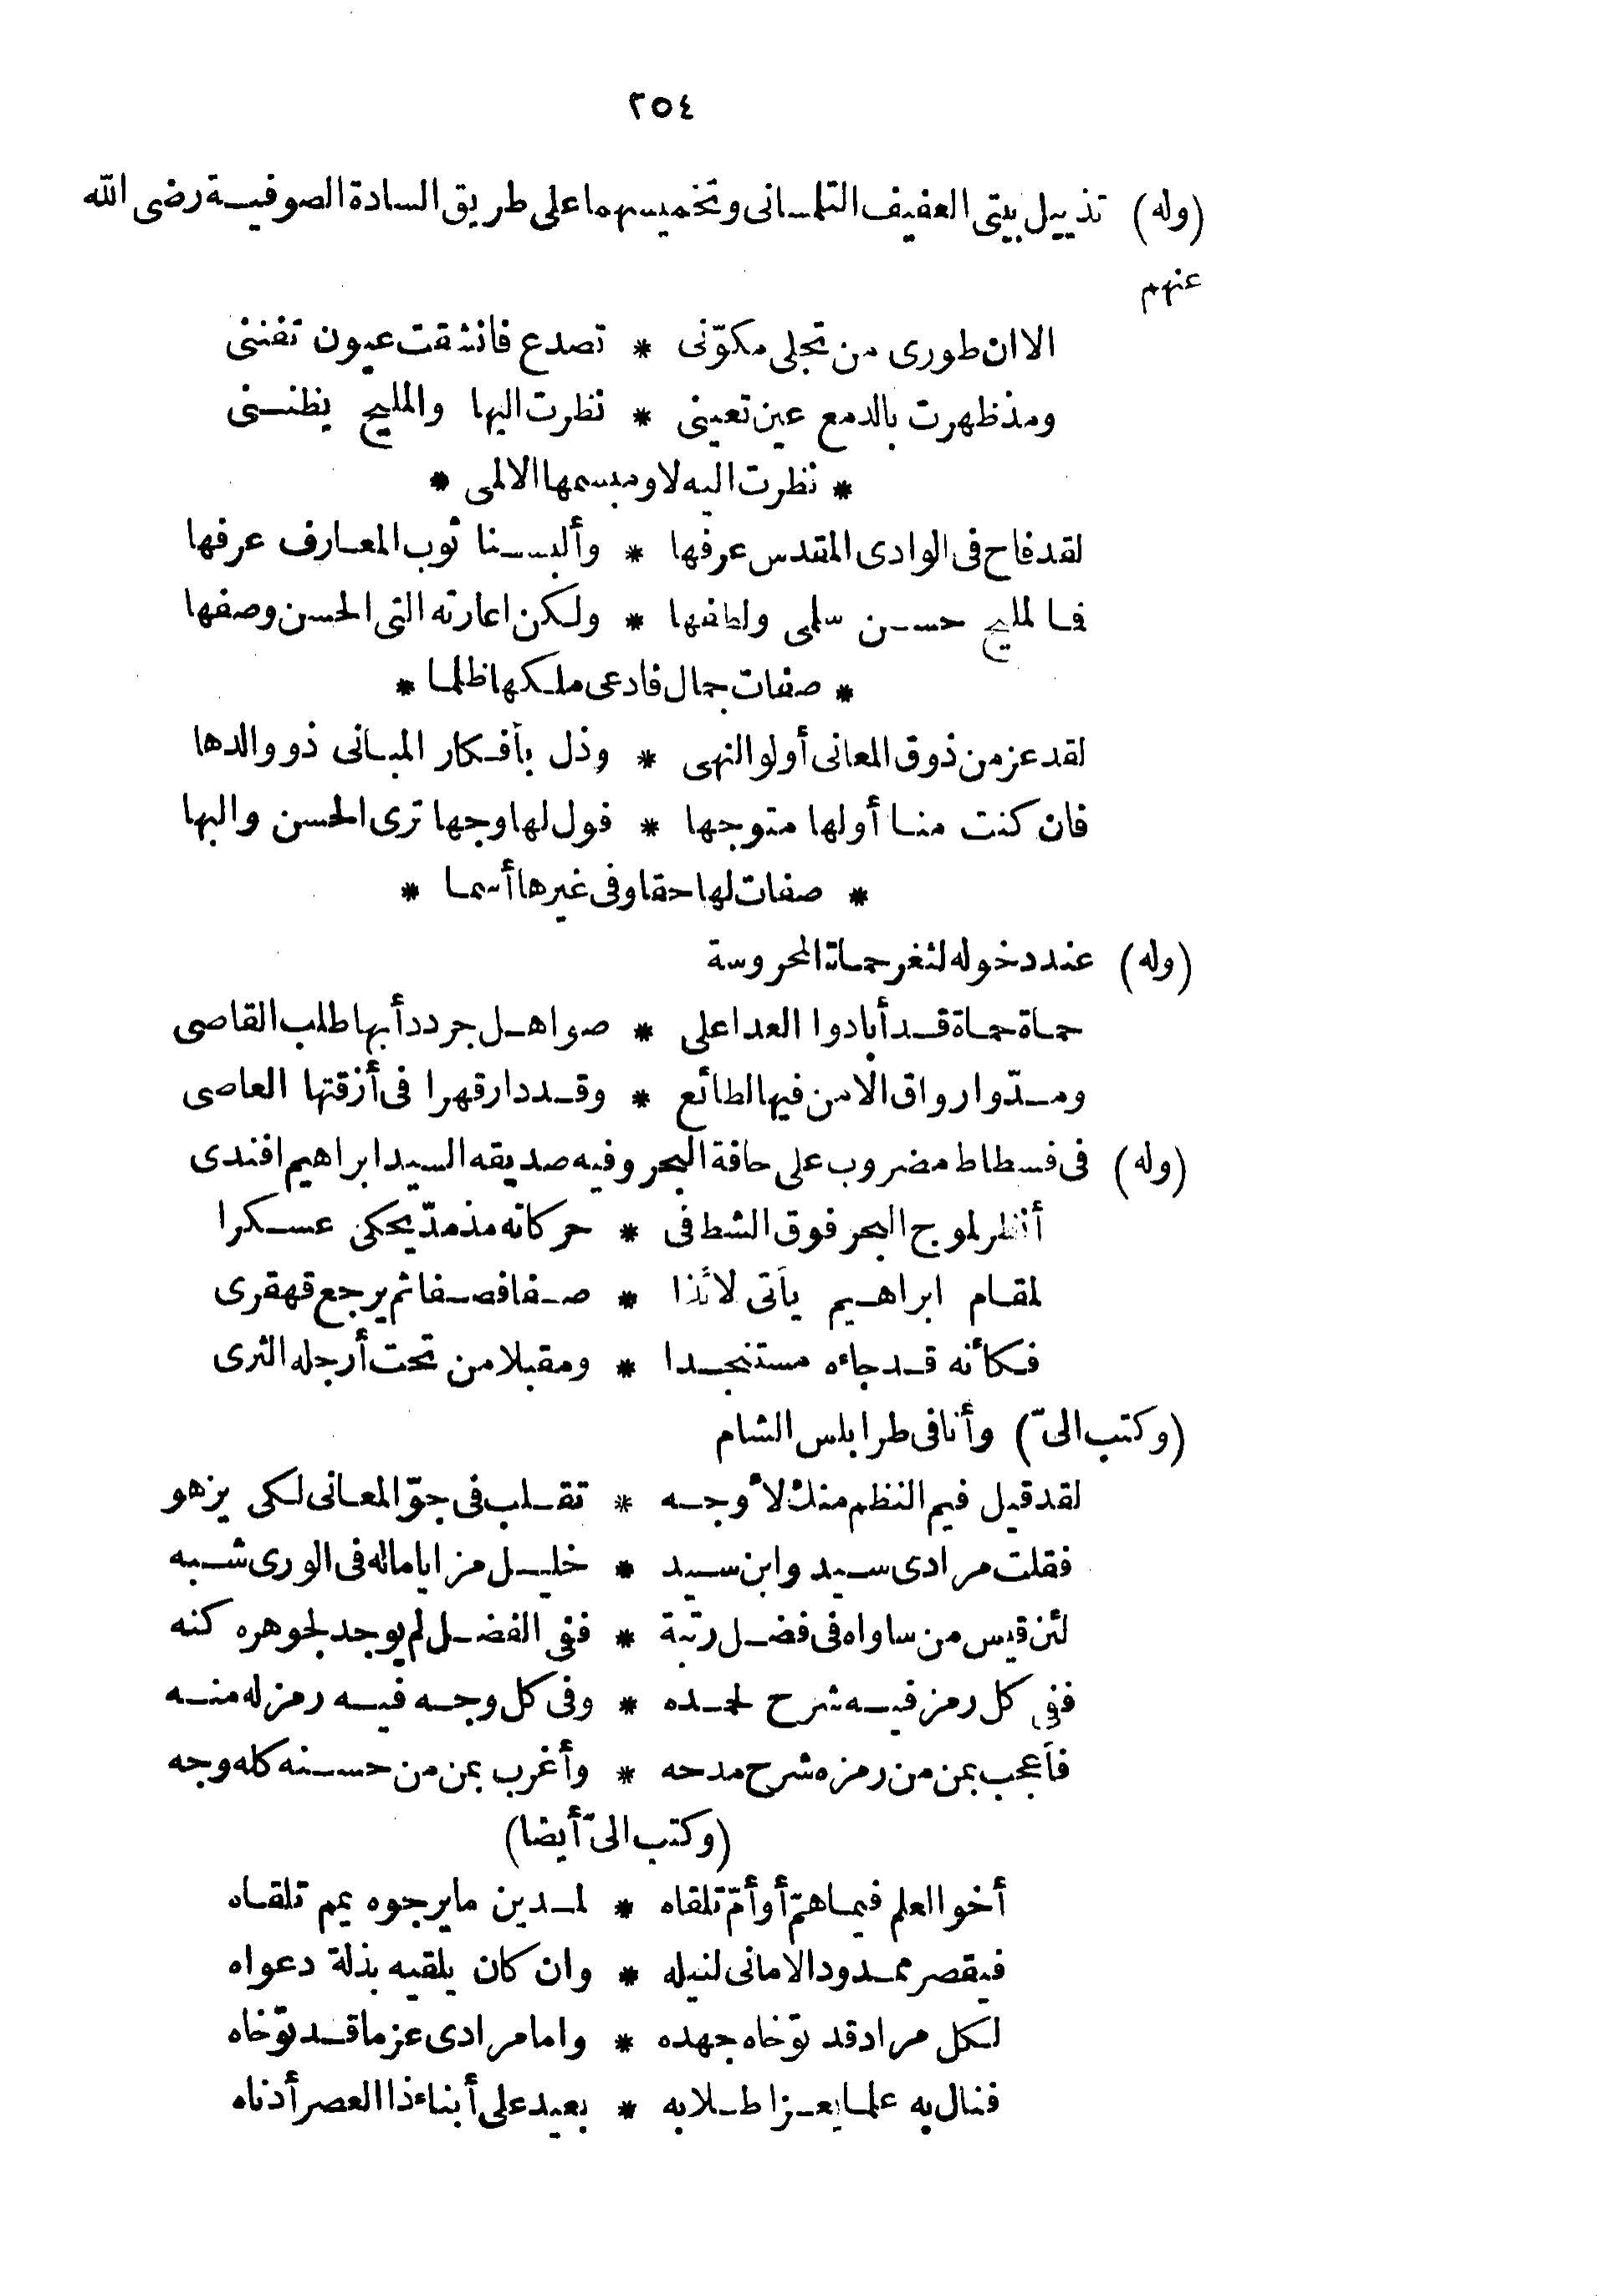 ٢٥٤
(وله) تذييل بيتى العفيف التلمسانى وتخميسهما على طريق السادة الصوفية رضى الله
عنهم
الا ان طورى من تجلى مكوّنى * تصدع فانشقت عيون تفننى
ومذ ظهرت بالدمع عين تعيننى * نظرت اليها والمليح يظننى
* نظرت اليه لا ومبسمها الالمى *
لقد فاح فى الوادى المقدس عرفها * وألبسنا ثوب المعارف عرفها
فا لمليح حسن سلمى ولطفها * ولكن اعارته التى الحسن وصفها
* صفات جمال فادعى ملكها ظلما *
لقد عز من ذوق المعانى أولو النهى * وذل بأفكار المبانى ذوو الدها
فان كنت منا أولها متوجها * فول لها وجها ترى الحسن والبها
* صفات لها حقا وفى غيرها أسما *
(وله) عند دخوله لثغر حماة المحروسة
حماة حماة قد أبادوا العدا على * صواهل جرد دأبها طلب القاصى
ومدّوا رواق الامن فيها لطائع * وقد دار قهرا فى أزقتها العاصى
(وله) فى فسطاط مضروب على حافة البحر وفيه صديقه السيد ابراهيم افندى
أنظر لموج البحر فوق الشط فى * حركاته مذ مدّ يحكى عسكرا
لمقام ابراهيم يأتى لائذا * صفا فصفا ثم يرجع قهقرى
فكأنه قد جاءه مستنجدا * ومقبلا من تحت أرجله الثرى
(وكتب الىّ) وأنا فى طرابلس الشام
لقد قيل فيم النظم منك لأوجه * تقلب فى جوّ المعانى لكى يزهو
فقلت مرادى سيد وابن سيد * خليل مزايا ماله فى الورى شبه
لئن قيس من ساواه فى فضل رتبة * ففى الفضل لم يوجد لجوهره كنه
ففى كل رمز فيه شرح لمجده * وفى كل وجه فيه رمز له منه
فأعجب بمن من رمزه شرح مدحه * وأغرب بمن من حسنه كله وجه
(وكتب الىّ أيضا)
أخو العلم فيما همّ أو أمّ تلقاه * لمدين ما يرجوه يمم تلقاه
فيقصر ممدود الامانى لنيله * وان كان يلقيه بذلة دعواه
لكل مراد قد توّخاه جهده * واما مرادى عز ما قد توّخاه
فنال به علما يعز اطلابه * بعيد على أبناء ذا العصر أدناه